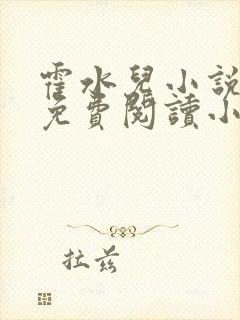 霍水兒小說
免費閱讀小
拉茲